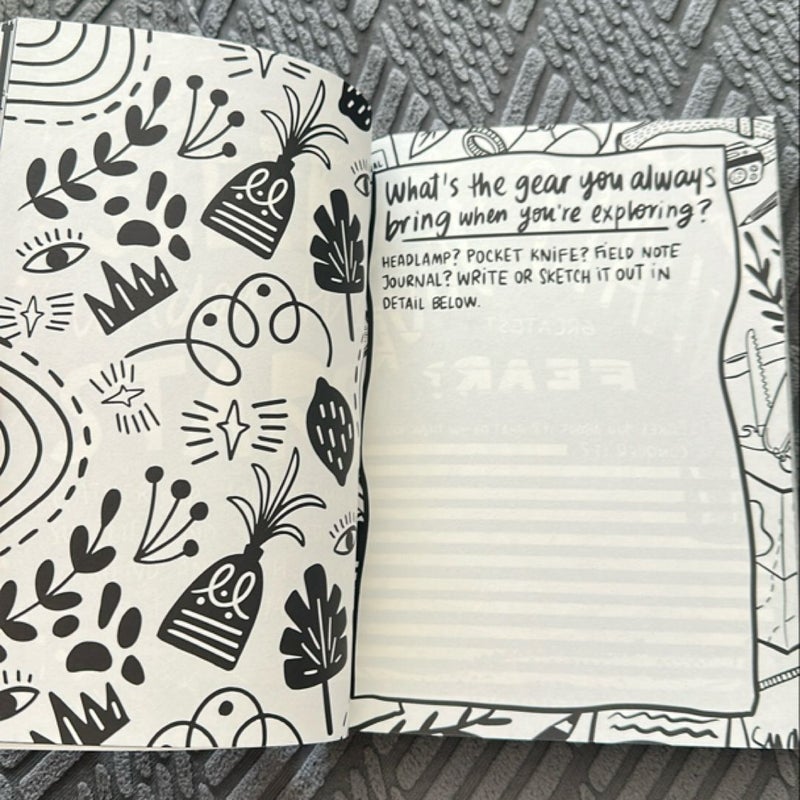 What's the gear you always
bring when you're exploring?
HEADLAMP? POCKET KNIFE? FIELD NOTE
JOURNAL? WRITE OR SKETCH IT OUT IN
DETAIL BELOW.
GREATEST
FEAR?